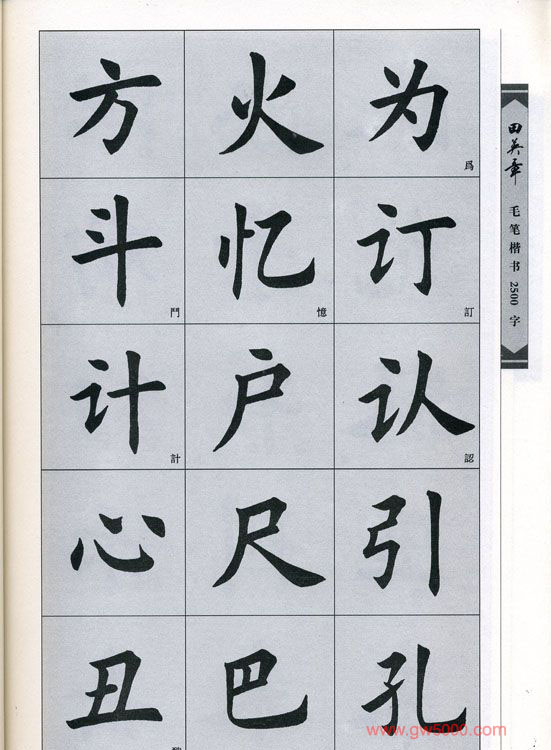 方 火 为
爲
斗 忆 订
鬥 憶 訂
计 户 认
計 認
心 尺 引
丑 巴 孔
田英章
毛笔楷书2500字
www.gw5000.com